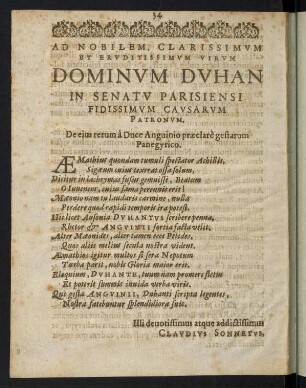 34
AD NOBILEM, CLARISSIMVM
ET ERVDITISSIMVM VIRVM
DOMINVM DVHAN
IN SENATV PARISIENSI
FIDISSIMVM CAVSARVM
PATRONVM.
De eius rerum à Duce Anguinio præclarè gestarum
Panegyrico.
ÆMathius quondam tumuli spectator Achillis,
Sigæum cuius texerat ossa solum,
Dicitur in lachrymas fusus gemuisse, Beatum
O Iuuenem, cuius fama perennis erit!
Mæonio nam tu laudaris carmine, nulla
Perdere quod rapidi temporis ira potest.
Hîc licet Ausonio DVHANTVS scribere penna,
Rhetor & ANGVINII fortia facta velit.
Alter Mæonides, alter tamen ecce Pelides,
Quos aliis melius sæcula nostra vident.
Æmathios igitur multos si sera Nepotum
Turba parit, nobis Gloria maior erit.
Eloquium, DVHANTE, tuum nam proderit flctus
Et poterit summis inuida verba viris.
Qui gesta ANGVINII, Duhanti scripta legentes,
Nostra fatebuntur splendidiora suis.
Illi deuotissimus atque addictissimus
CLAVDIVS SONNETVS.